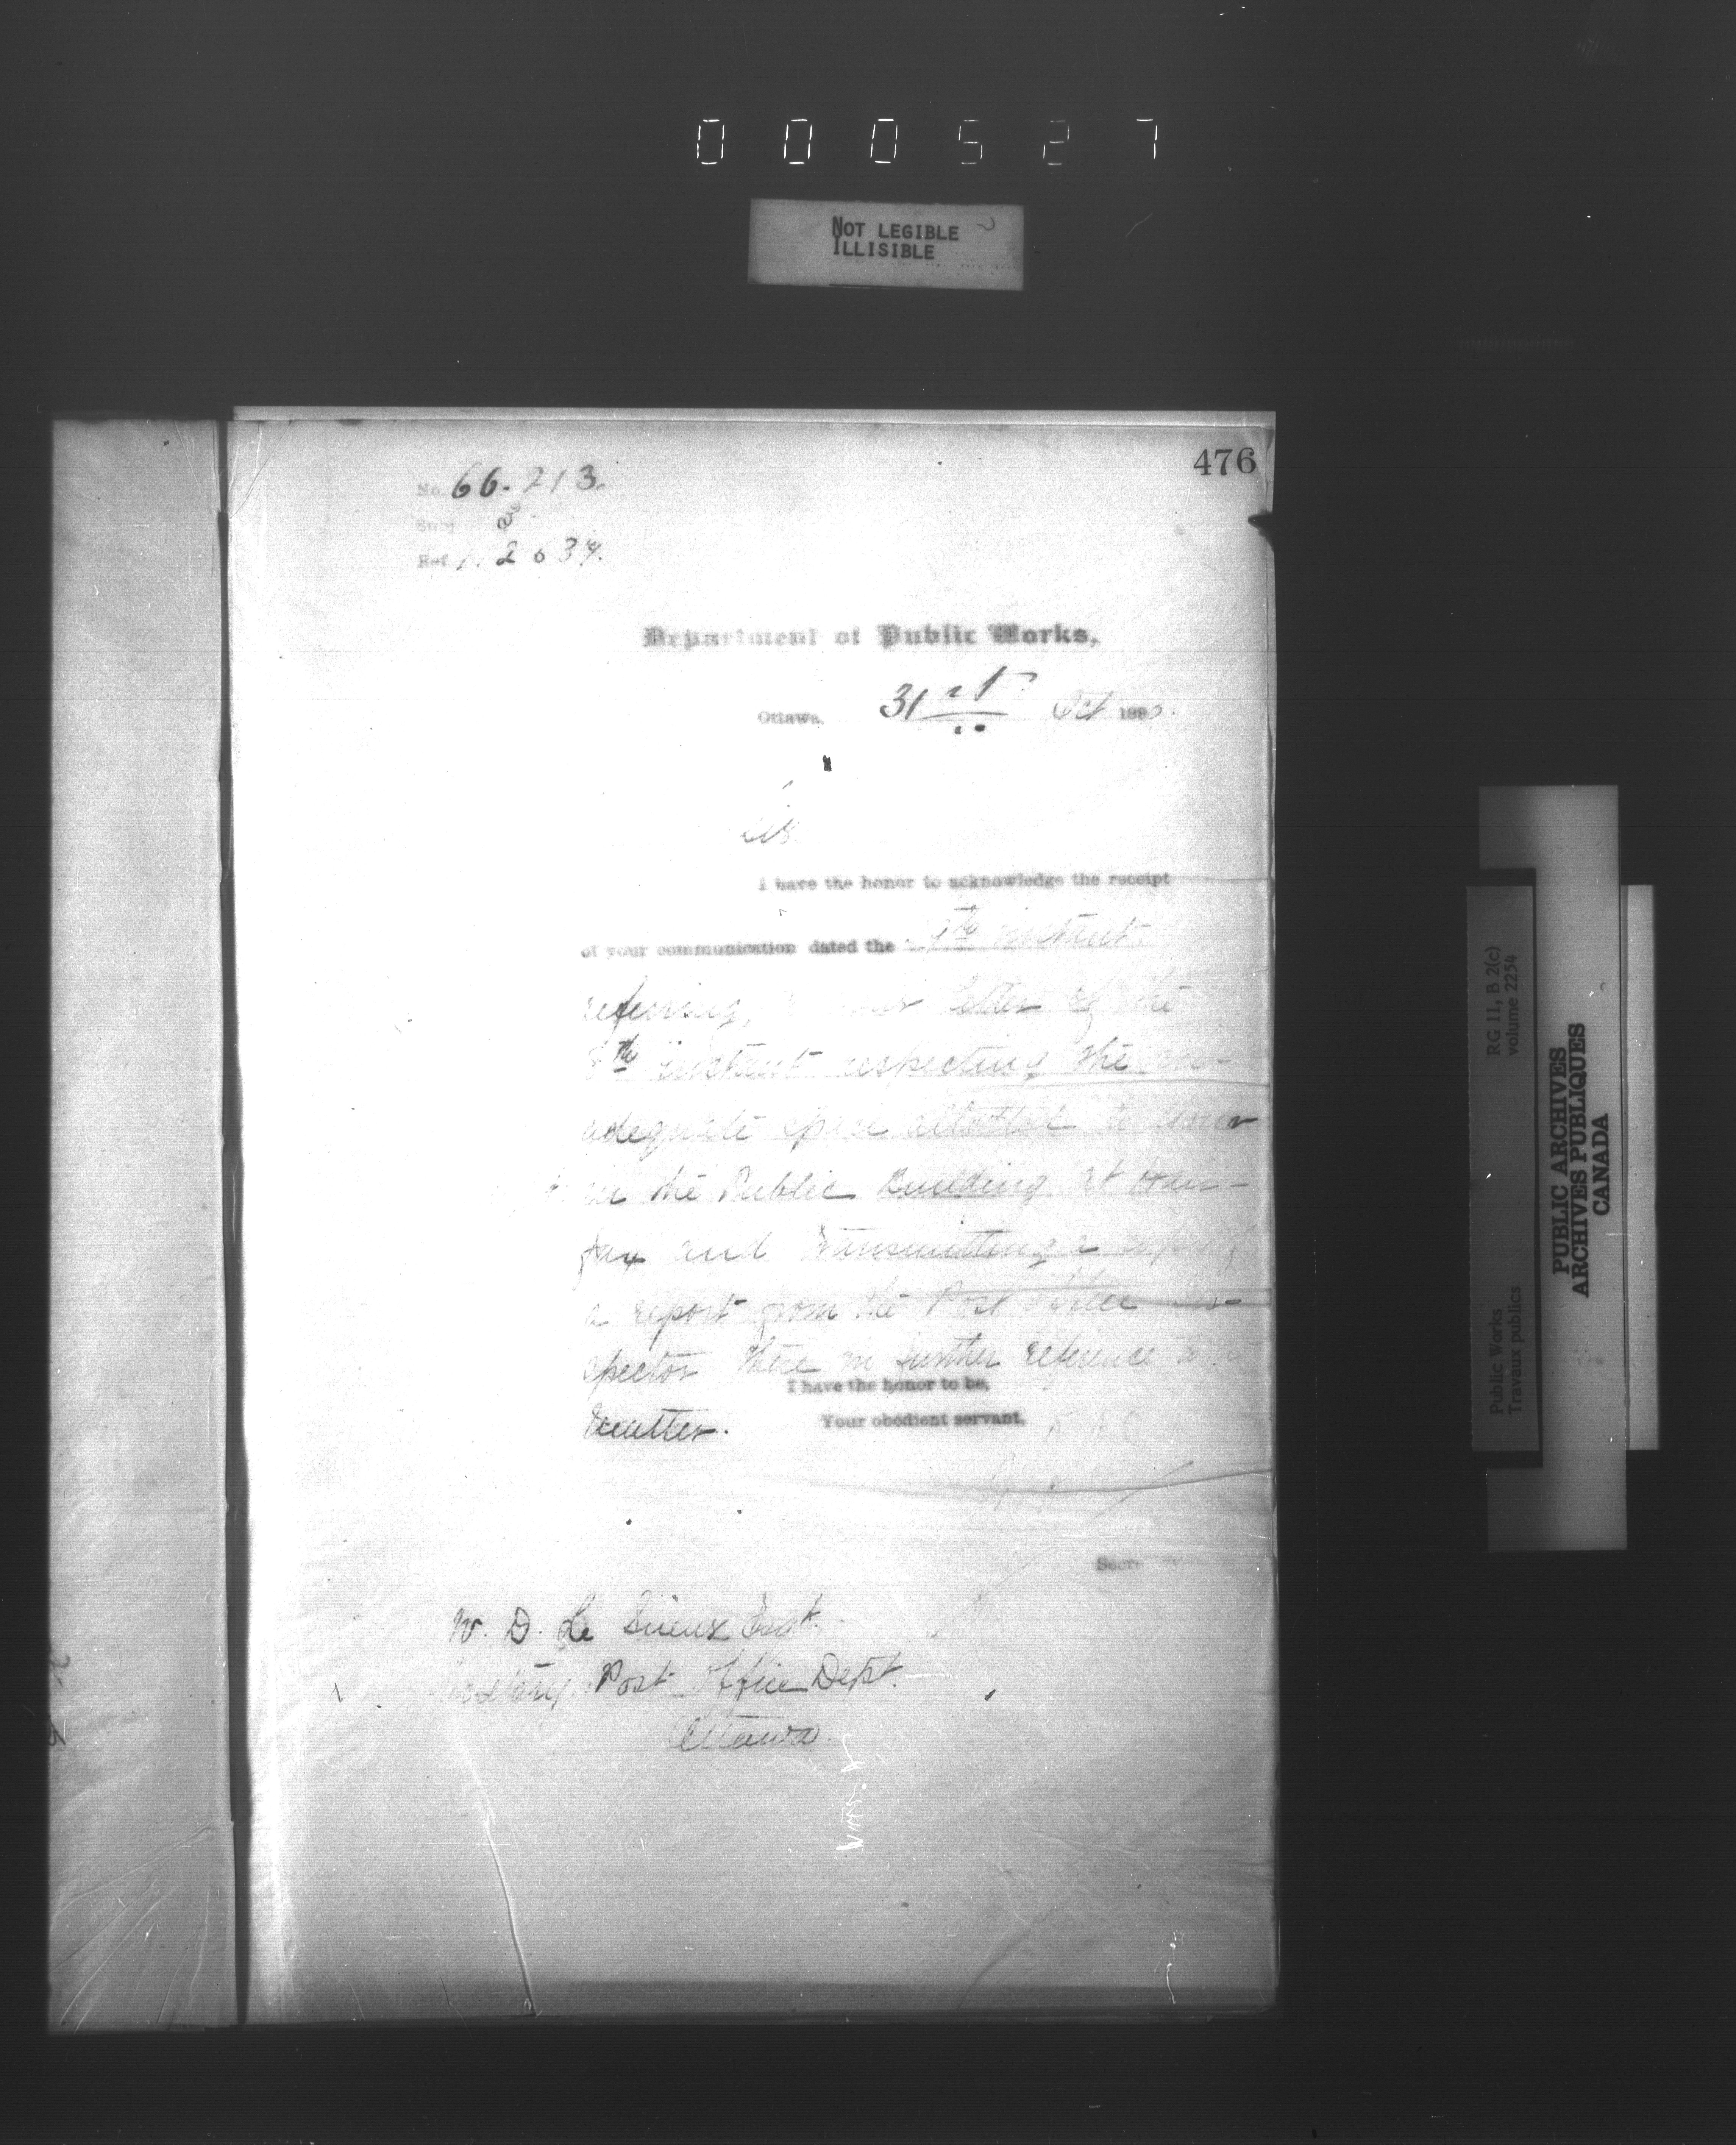 000527
NOT LEGIBLE
ILLISIBLE
476
No. 66.213.
Subj
Ref.
Department of Public Works,
Ottawa, 31st Oct 188
Sir
I have the honor to acknowledge the receipt
of your communication dated the instant
referring, letter of the
instant respecting the in-
adequate space allotted to
in the Public Building at Hali-
fax and transmitting a
a report from the Post Office In-
spector there in further reference to
matter.
I have the honor to be,
Your obedient servant,
Secre
W. D. Le Sueur Esqr.
Secretary Post Office Dept.
Ottawa.
RG 11, B 2(c)
volume 2254
Public Works
Travaux publics
PUBLIC ARCHIVES
ARCHIVES PUBLIQUES
CANADA